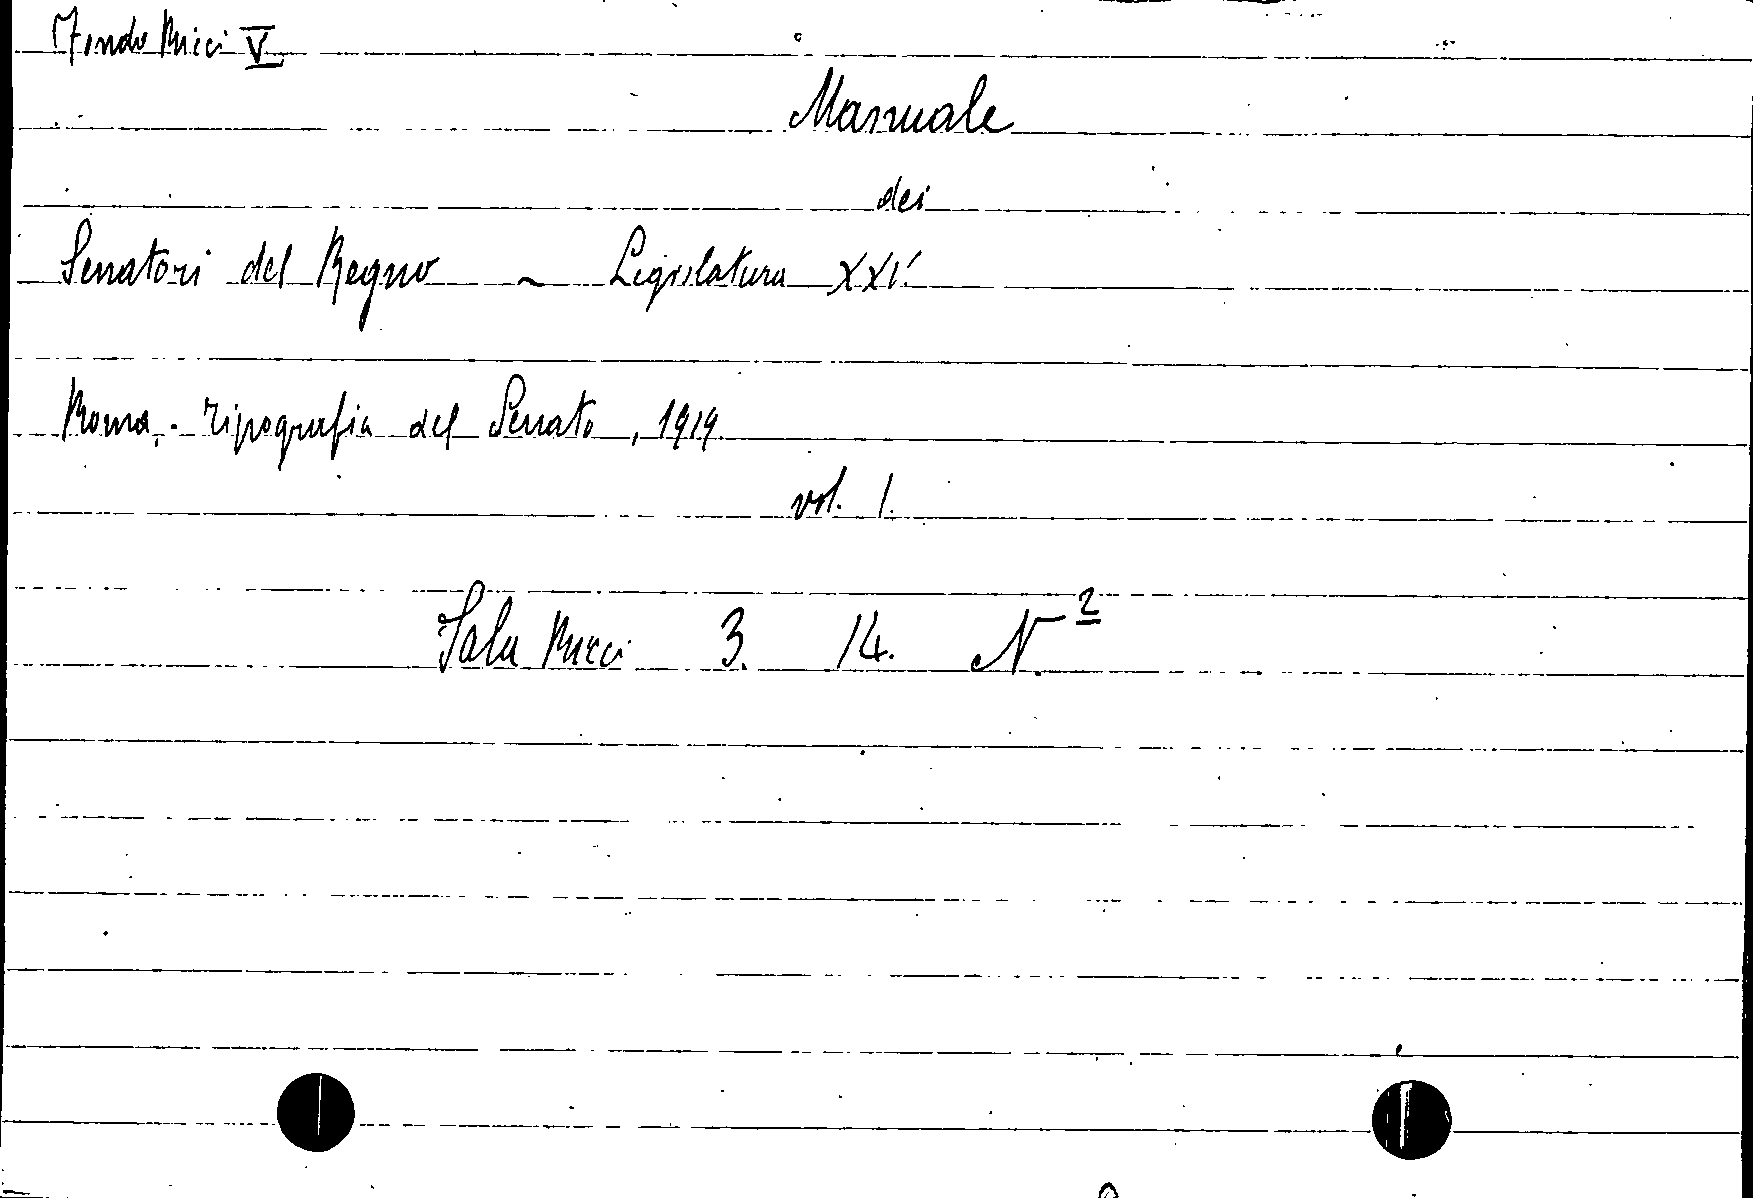 Fondo Ricci V
Manuale
dei
Senatori del Regno ~ Legislatura XXI.
Roma, - Tipografia del Senato, 1919.
vol. 1.
Sala Ricci 3. 14. N. 2